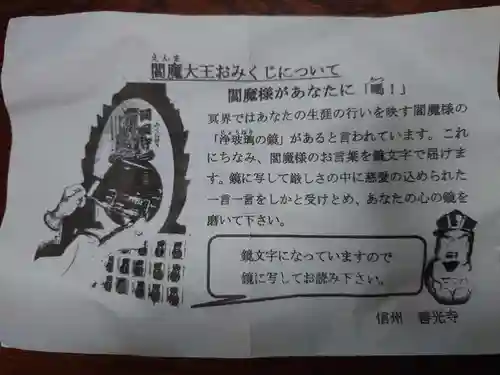 閻魔大王おみくじについて
えんま
閻魔様があなたに「喝！」
かつ
冥界ではあなたの生涯の行いを映す閻魔様の
「浄玻璃の鏡」があると言われています。これ
じょうはり
にちなみ、閻魔様のお言葉を鏡文字で届けま
す。鏡に写して厳しさの中に慈愛の込められた
一言一言をしかと受けとめ、あなたの心の鏡を
磨いて下さい。
鏡文字になっていますので
鏡に写してお読み下さい。
信州 善光寺